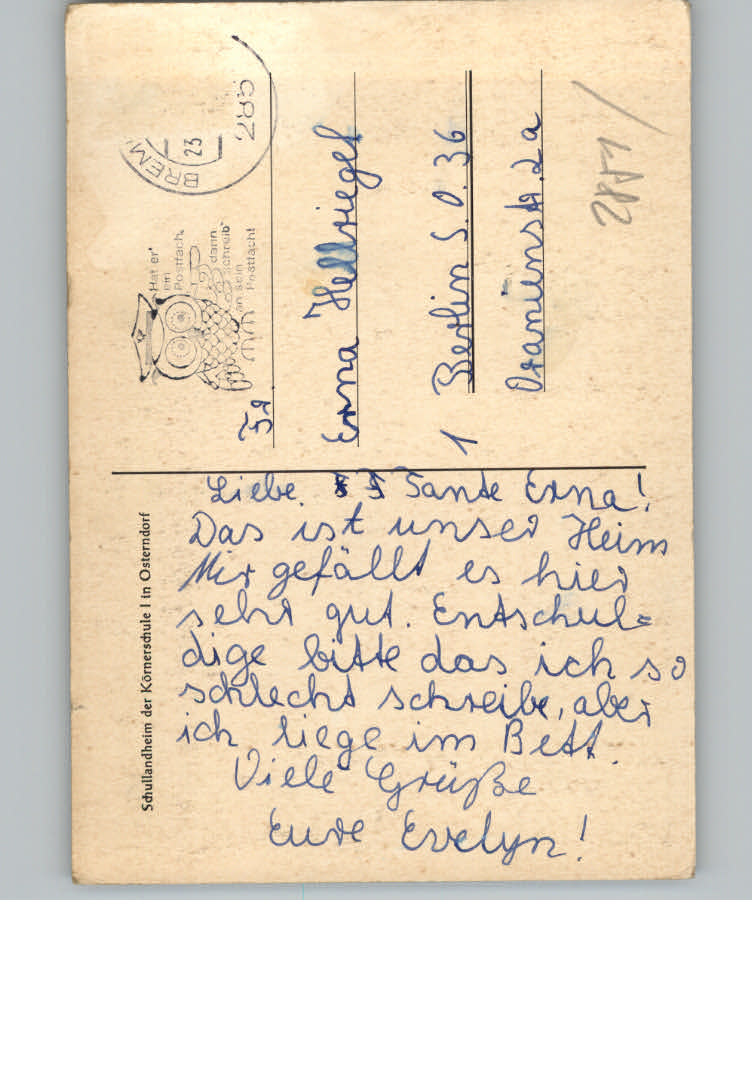 Liebe Tante Erna!
Das ist unser Heim
Mir gefällt es hier
sehr gut. Entschul=
dige bitte das ich so
schlecht schreibe, aber
ich liege im Bett.
Viele Grüße
Eure Evelyn!
Schullandheim der Körnerschule I in Osterndorf
Fr.
Erna Hellriegel
1 Berlin S.O. 36
Oranienstr. 2a
Hat er
ein
Postfach,
dann
schreib'
an sein
Postfach!
BREM
23
285